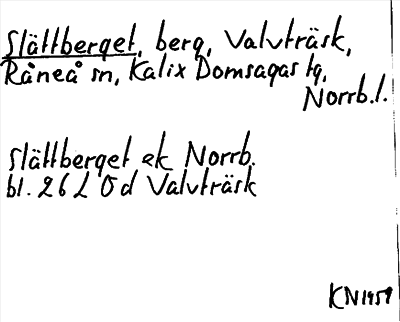 Slättberget, berg, Valvträsk,
Råneå sn, Kalix Domsagas tg,
Norrb.l.
Slättberget ek Norrb.
bl. 26 L 0 d Valvträsk
KN 1959